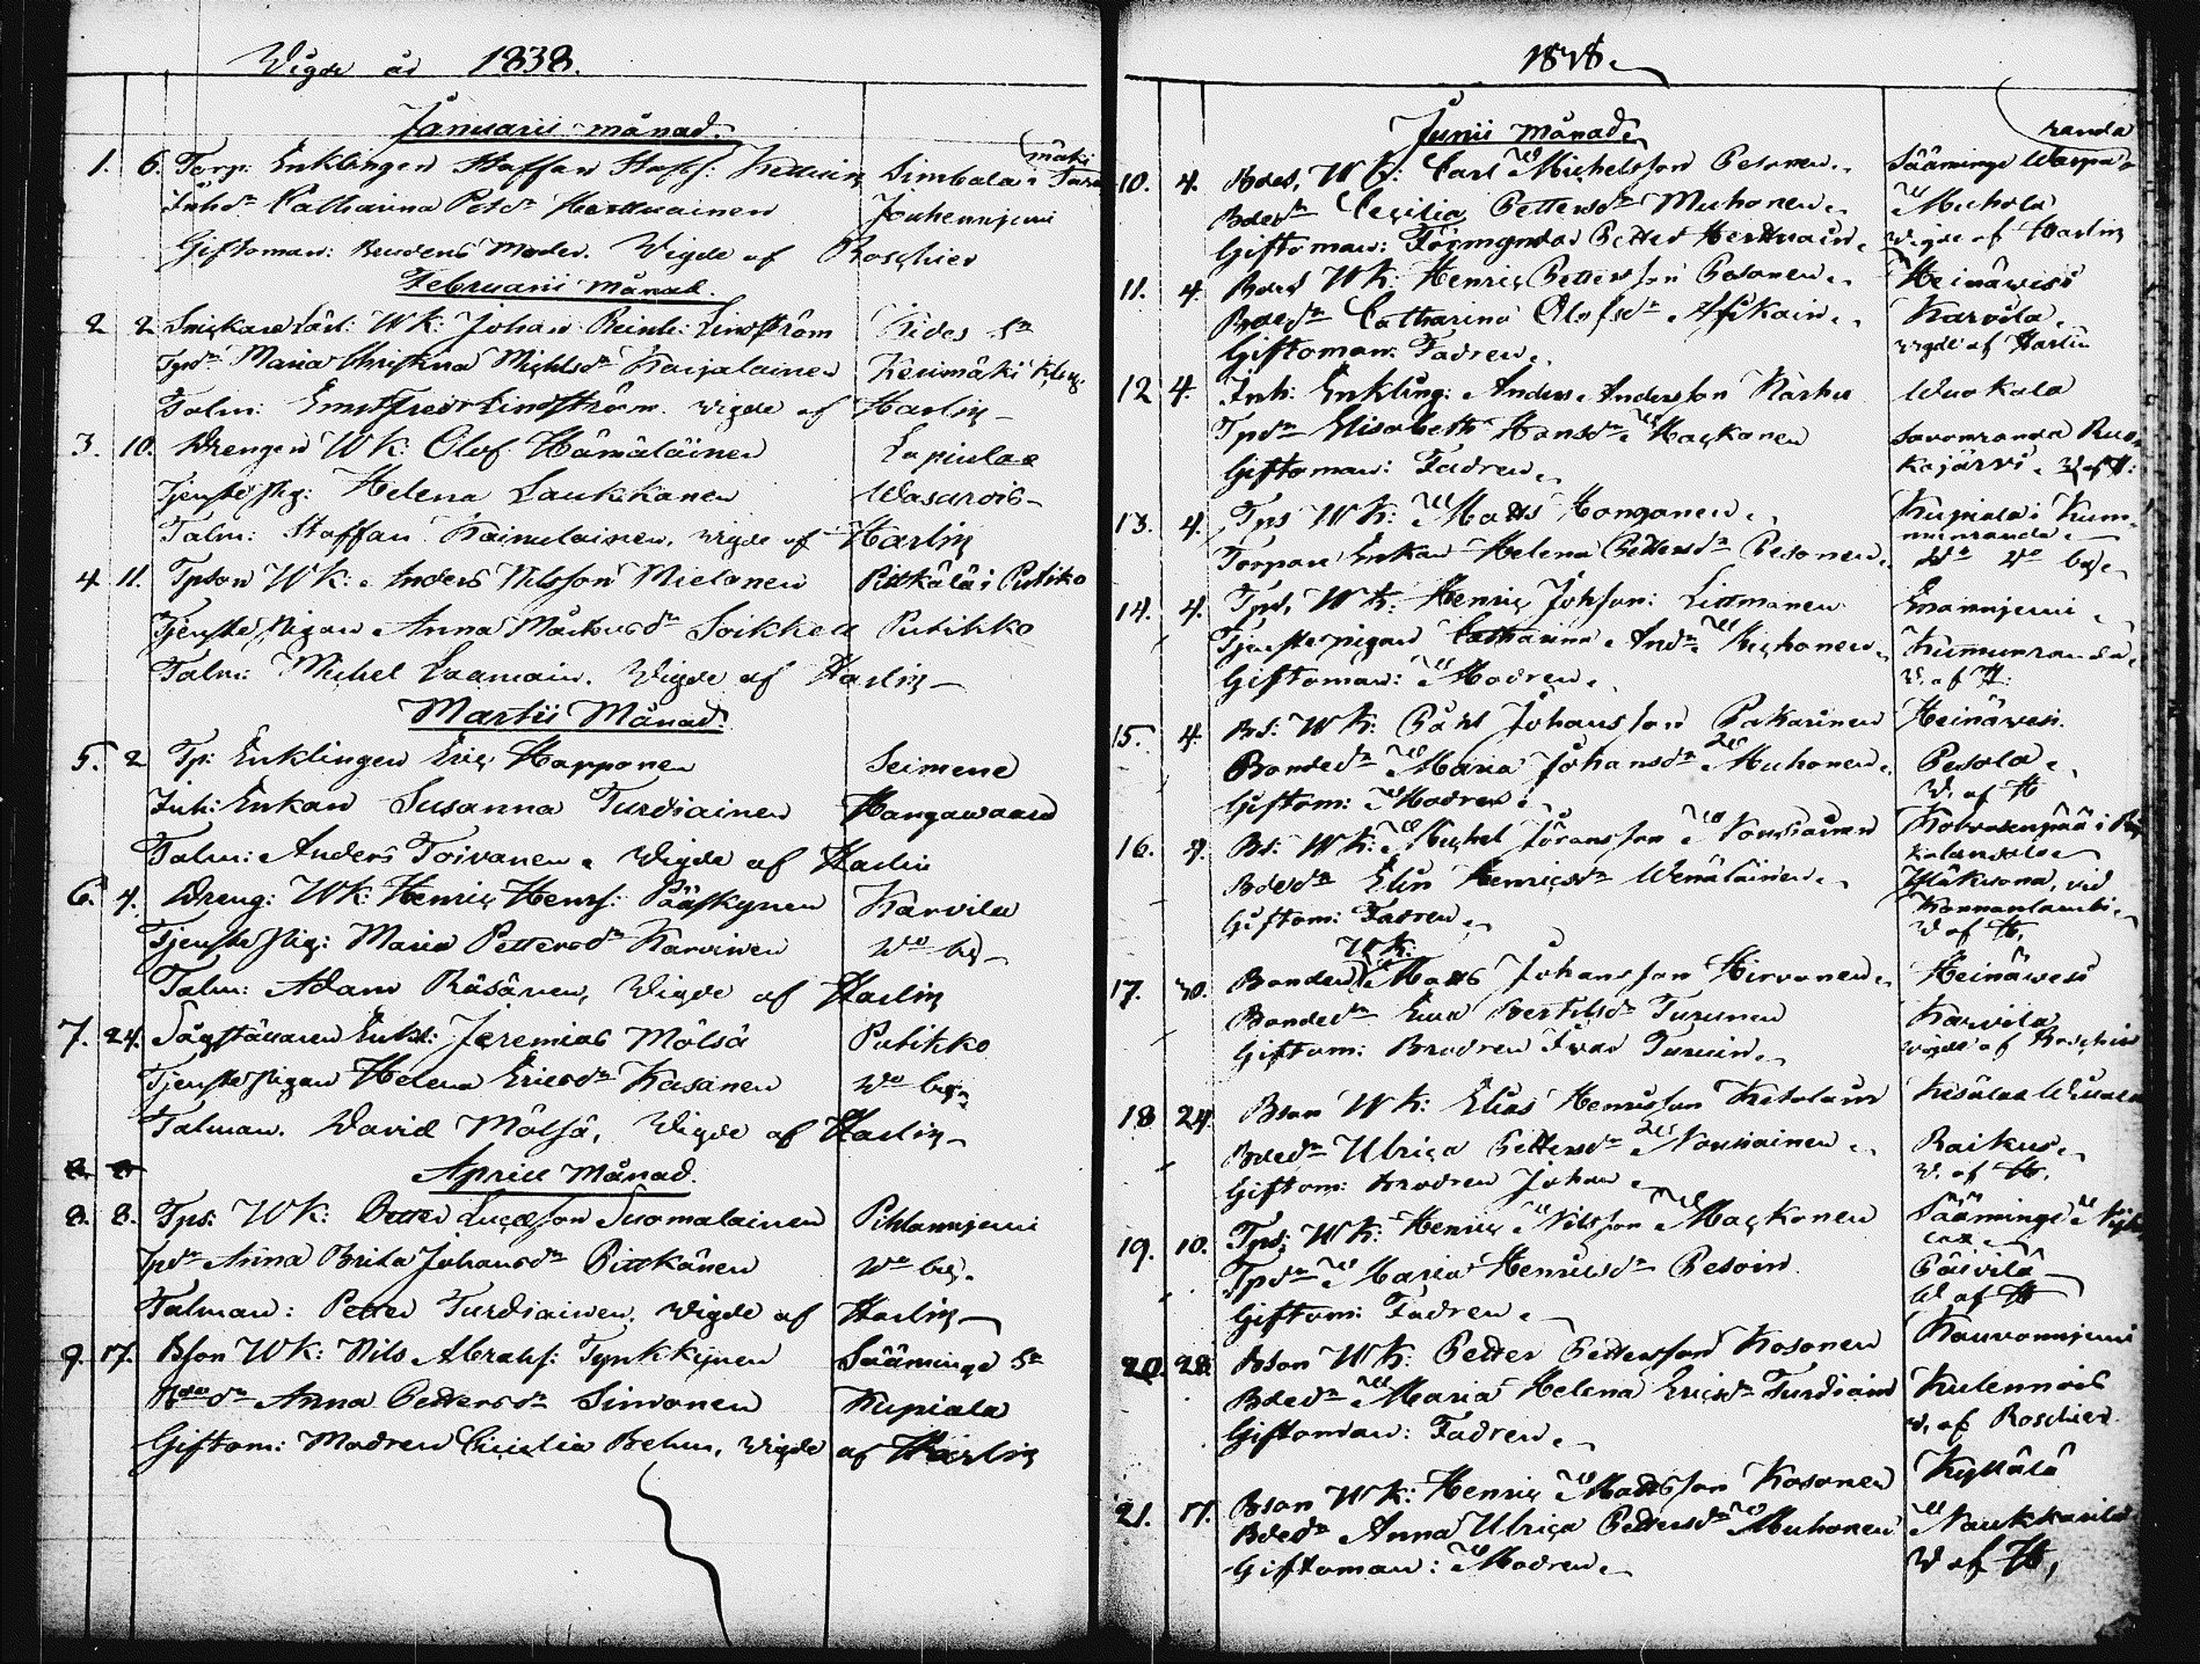 Wigde år 1838.
Januarii månad.
1. 6. Torp: Enklingen Staffan Staffs: Simbala i
mäki
Inhdr Catharina Petdr Herttuainen Jouhenniemi
Giftoman: Brudens Moder. Wigde af Roschier
Februarii månad.
2 2 WK: Johan Reinh: Lindström Kides Sn
Maria Christina Michlsdr Karjalainen Kerimäki
Talm: Lindström. Wigde af Harlin
3. 10. Drengen WK: Olof Hämäläinen Lapinlax
Tjenste pig: Helena Laukkanen Wasarois
Talm: Staffan Kaimulainen, wigde af Harlin
4 11. Tpson WK: Anders Nilsson Mielonen Pitkälä i Putiko
Tjenste pigan Anna Mårtensdr Soikkeli Putikko
Talm: Michel Laamain. Wigde af Harlin
Martii Månad.
5. 2 Tp: Enklingen Eric Happonen Seimene
Inh: Enkan Susanna Turdiainen Hangawaara
Talm: Anders Toivanen. Wigde af Harlin
6. 4. Dreng: WK: Henric Henrs: Pääskynen Karvila
Tjenste pig: Maria Pettersdr Karvinen Do by
Talm: Adam Räsänen, Wigde af Harlin
7. 24. Sågställaren Enkl: Jeremias Mölsä Putikko
Tjenste pigan Helena Ericsdr Kasanen Do by
Talman. David Mölsä, Wigde af Harlin
Aprill Månad.
8. 8. Tps: WK: Petter Lucasson Suomalainen Pihlainniemi
Tpdr Anna Brita Johansdr Pitkänen Do by.
Talman: Petter Turdiainen. Wigde af Harlin
9. 17. Bson WK: Nils Abrahs: Tynkkynen Sääminge Sn
Bdedr Anna Pettersdr Simonen Kupiala
Giftom: Modren Cicilia Behm, Wigde af Harlin
1838.
Junii Månad.
10. 4. Bdes. WK: Carl Michelsson Pesonen. Sääminge Warpa-
randa
Bdesdr Cecilia Pettersdr Muhonen. Muhola
Giftoman: Förmyndar Petter Herttuain. Wigde af Harlin
11. 4. Bdes WK: Henric Pettersson Pesonen. Heinäwesi
Bdedr Catharina Olofsdr Asikain. Karvila.
Giftoman: Fadren. Wigde af Harlin
12 4. Inh: Enkling: Anders Andersson Karhu Wuokala
Tpdr Elisabeth Hansdr Mackonen Savonranda
Giftoman: Fadren. W af H:
13. 4. Tps WK: Matts Honganen. Kupiala i Kum-
munranda.
Torpare Enkan Helena Pettersdr Pesonen. Do Do by.
14. 4. Tps. WK: Henric Johsson: Littmanen Enonniemi.
Tjenste pigan Catharina And.dr Kummunranda.
Giftoman: Modren. W. af H:
15. 4. Bs: WK: Påhl Johansson Pakarinen Heinäwesi.
Bondedr Maria Johansdr Muhonen. Pesola.
Giftom: Modren. W. af H
16. 4. Bs: WK: Michel Göransson Nousiainen
Bdesdr Elin Henricsdr Wenäläinen. vid
Giftom: Fadren. W af H.
17. 30. Bonden WK: Matts Johansson Hirvonen. Heinäwesi
Bondedr Ewa Bertilsdr Turunen Karvila
Giftom: Brodren Ivar Turuin. Wigde af Roschier
18 24. Bson WK: Elias Henrisson Ketolain
Bdedr Ulrica Pettersdr Nousiainen. Raikus.
Giftom: Brodren Johan. W. af H.
19. 10. Tps: WK: Henric Nilsson Mackonen Sääminge
Tpdr Maria Henricsdr Pesoin. Päivilä
Giftom: Fadren. W af H
20. 28. Bson WK: Petter Pettersson Kosonen Kauvonniemi
Bdedr Maria Helena Ericsdr Turdiain Kulennois
Giftoman: Fadren. W. af Roschier.
21. 17. Bson WK: Henric Mattsson Kosonen Kyllälä
Bdedr Anna Ulrica Pettersdr Muhonen Naukkarila
Giftoman: Modren. W af H,